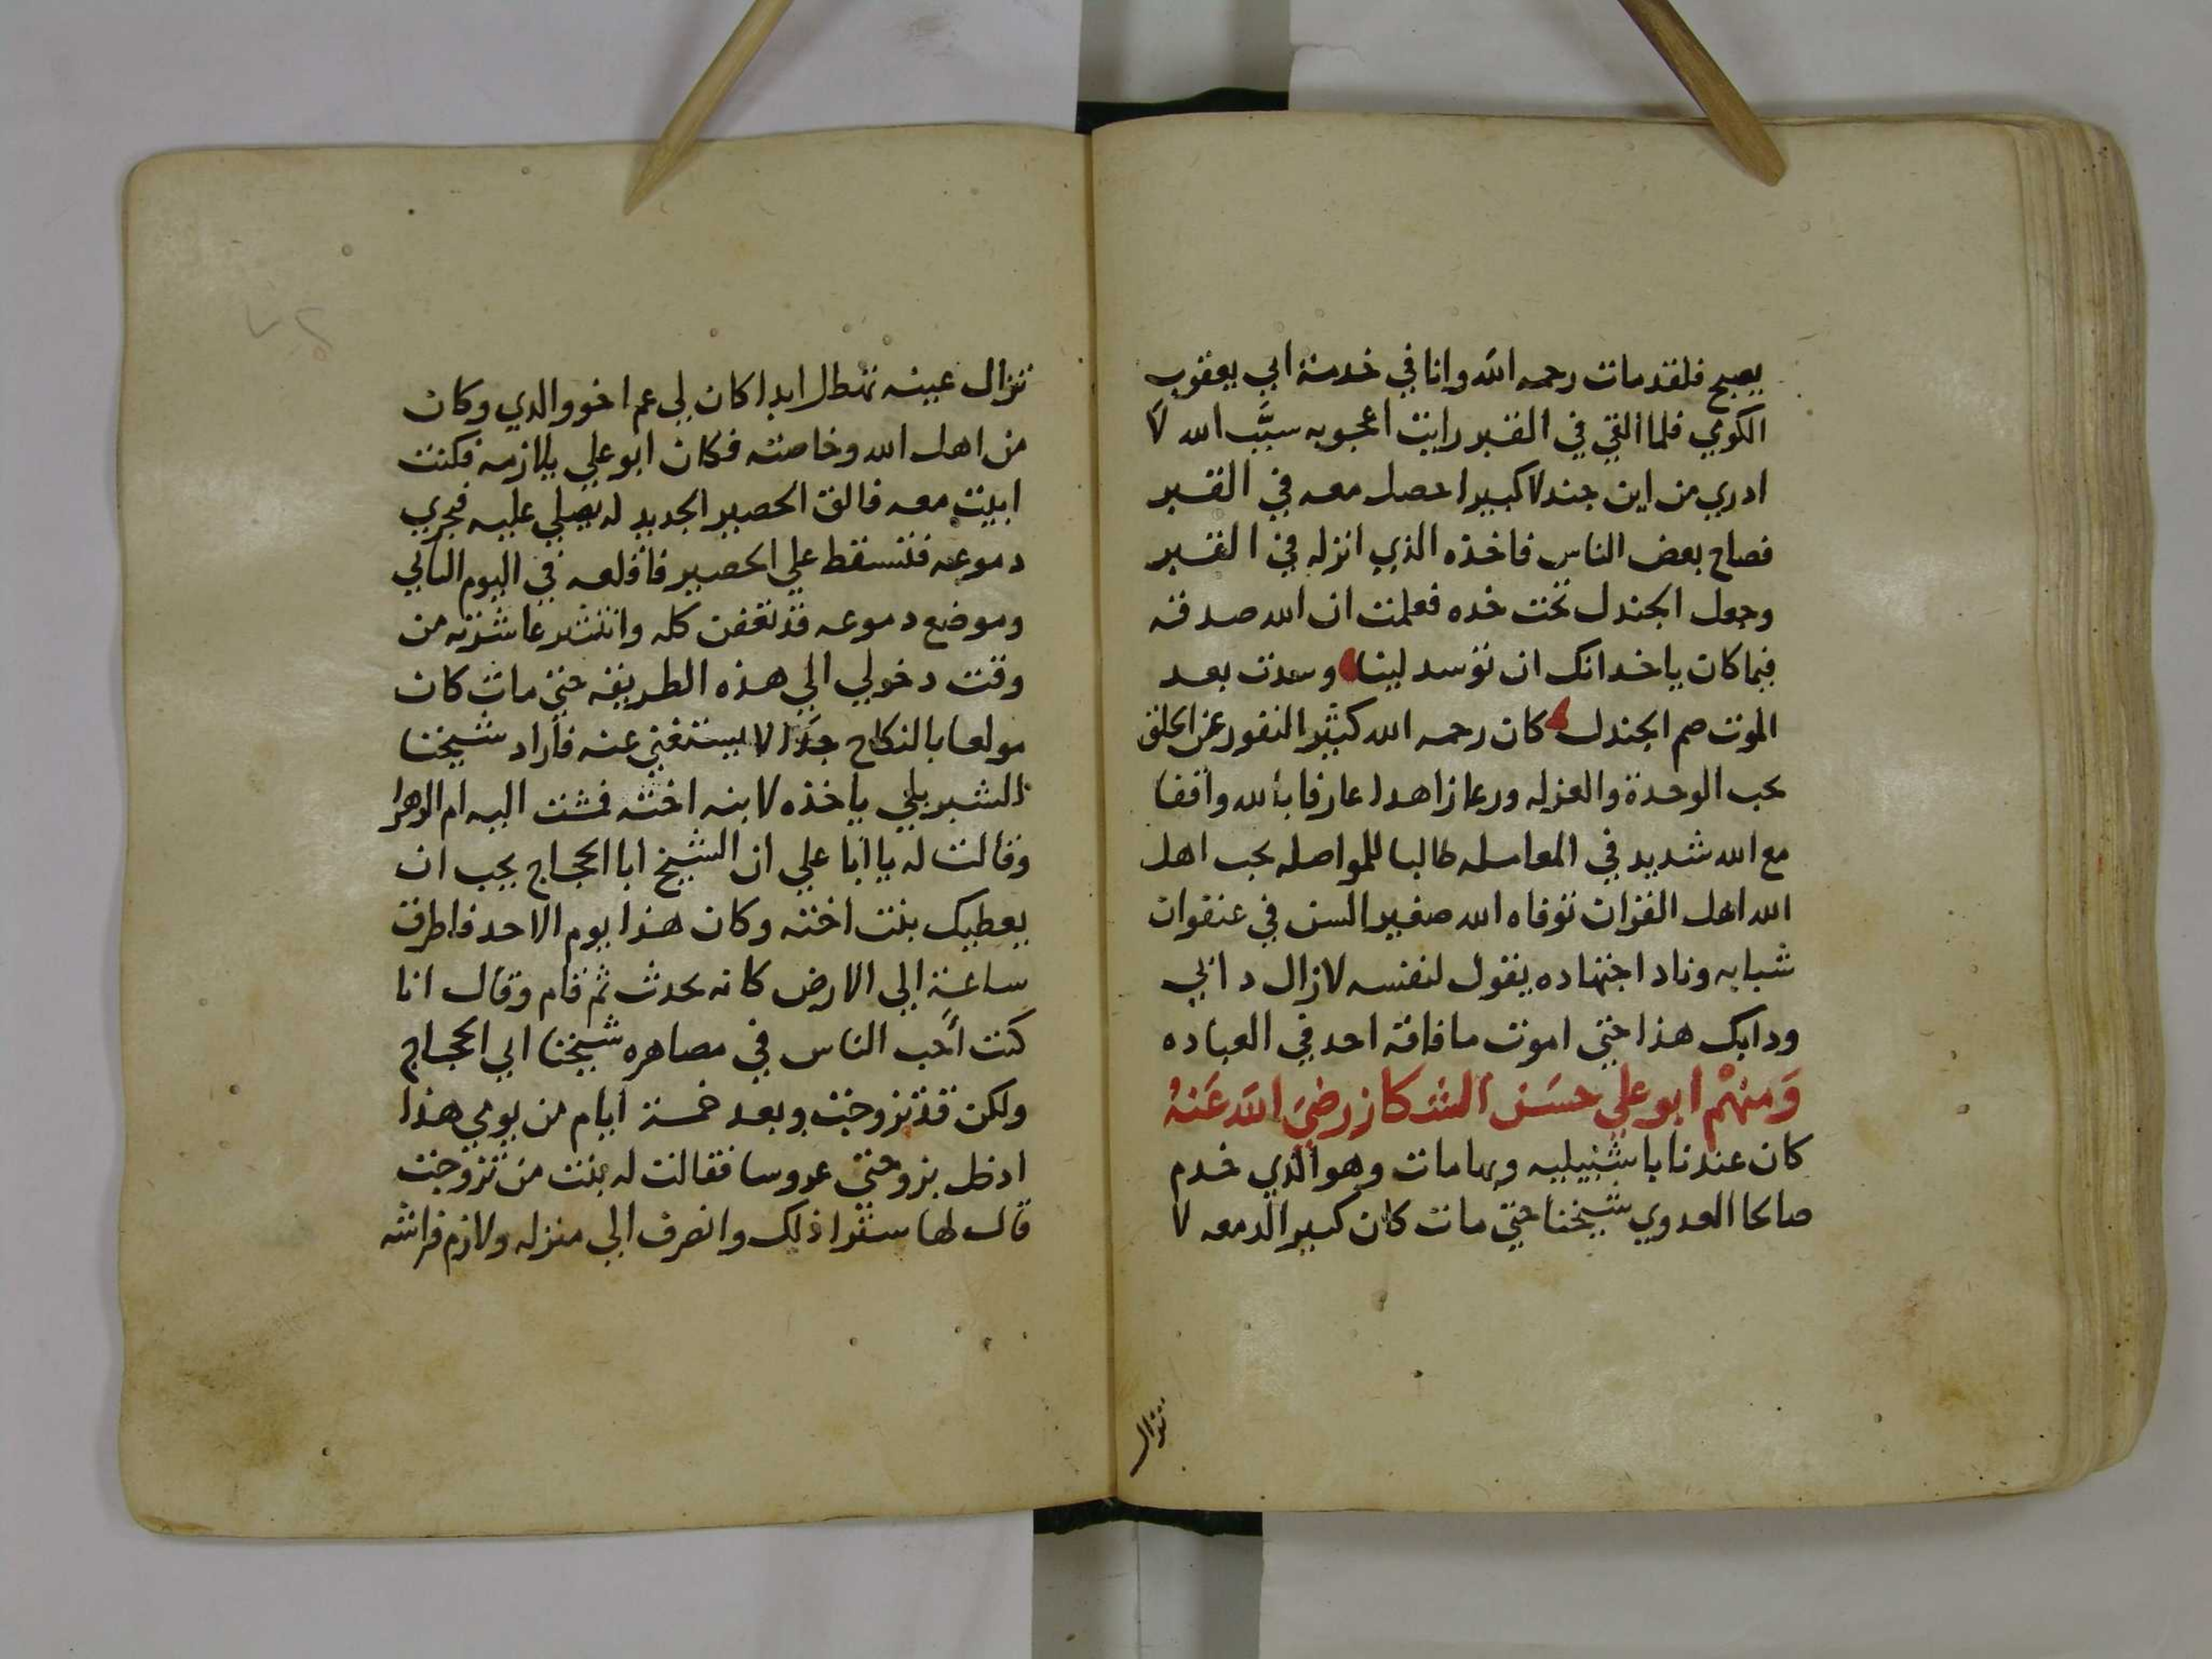 يصيح فلقد مات رحمه الله وانا في خدمة ابي يعقوب
الكومي فلما القي في القبر رايت اعجوبه سبَّب الله لا
ادري من اين جندلا كبيرا حصل معه في القبر
فصاح بعض الناس فاخذه الذي انزله في القبر
وجعل الجندل تحت خده فعلمت ان الله صدقه
فيما كان ياخدانك ان توسد لينا وسدت بعد
الموت صم الجندل كان رحمه الله كثير النفور عن الخلق
يحب الوحدة والعزله ورعا زاهدا عارفا بالله واقفا
مع الله شديد في المعامله طالبا للمواصله يحب اهل
الله اهل القران توفاه الله صغير السن في عنفوان
شبابه وناد اجتهاده يقول لنفسه لازال دابي
ودابك هذا حتى اموت ما فاقه احد في العباده
وَمنهْم ابو علي حسَن الشكاز رضيَ الله عَنهُ
كان عندنا باشبيليه وبها مات وهو الذي خدم
صالحا العدوي شيخنا حتى مات كان كبير الدمعه لا
تزال
تزال عينه تهطل ابدا كان لي عم اخو والدي وكان
من اهل الله وخاصته فكان ابو علي يلازمه فكنت
ابيت معه فالق الحصير الجديد له يصلي عليه فيجري
دموعه فتسقط علي الحصير فاقلعه في اليوم التالي
وموضع دموعه قد تعفن كله وانتثر عاشرته من
وقت دخولي الي هذه الطريقه حتى مات كان
مولعا بالنكاح جدًا لا يستغني عنه فاراد شيخنا
الشبربلي ياخذه لابنه اخته فمشت اليه ام الزهرا
وقالت له يا ابا علي ان الشيخ ابا الحجاج يحب ان
يعطيك بنت اخته وكان هذا يوم الاحد فاطرق
ساعة الي الارض كانه يحدث ثم قام وقال انا
كنت أحب الناس في مصاهره شيخنا ابي الحجاج
ولكن قد تزوجت وبعد خمسة ايام من يومي هذا
ادخل بزوجتي عروسا فقالت له بنت من تزوجت
قال لها ستقرا ذلك وانصرف الي منزله ولازم فراشه